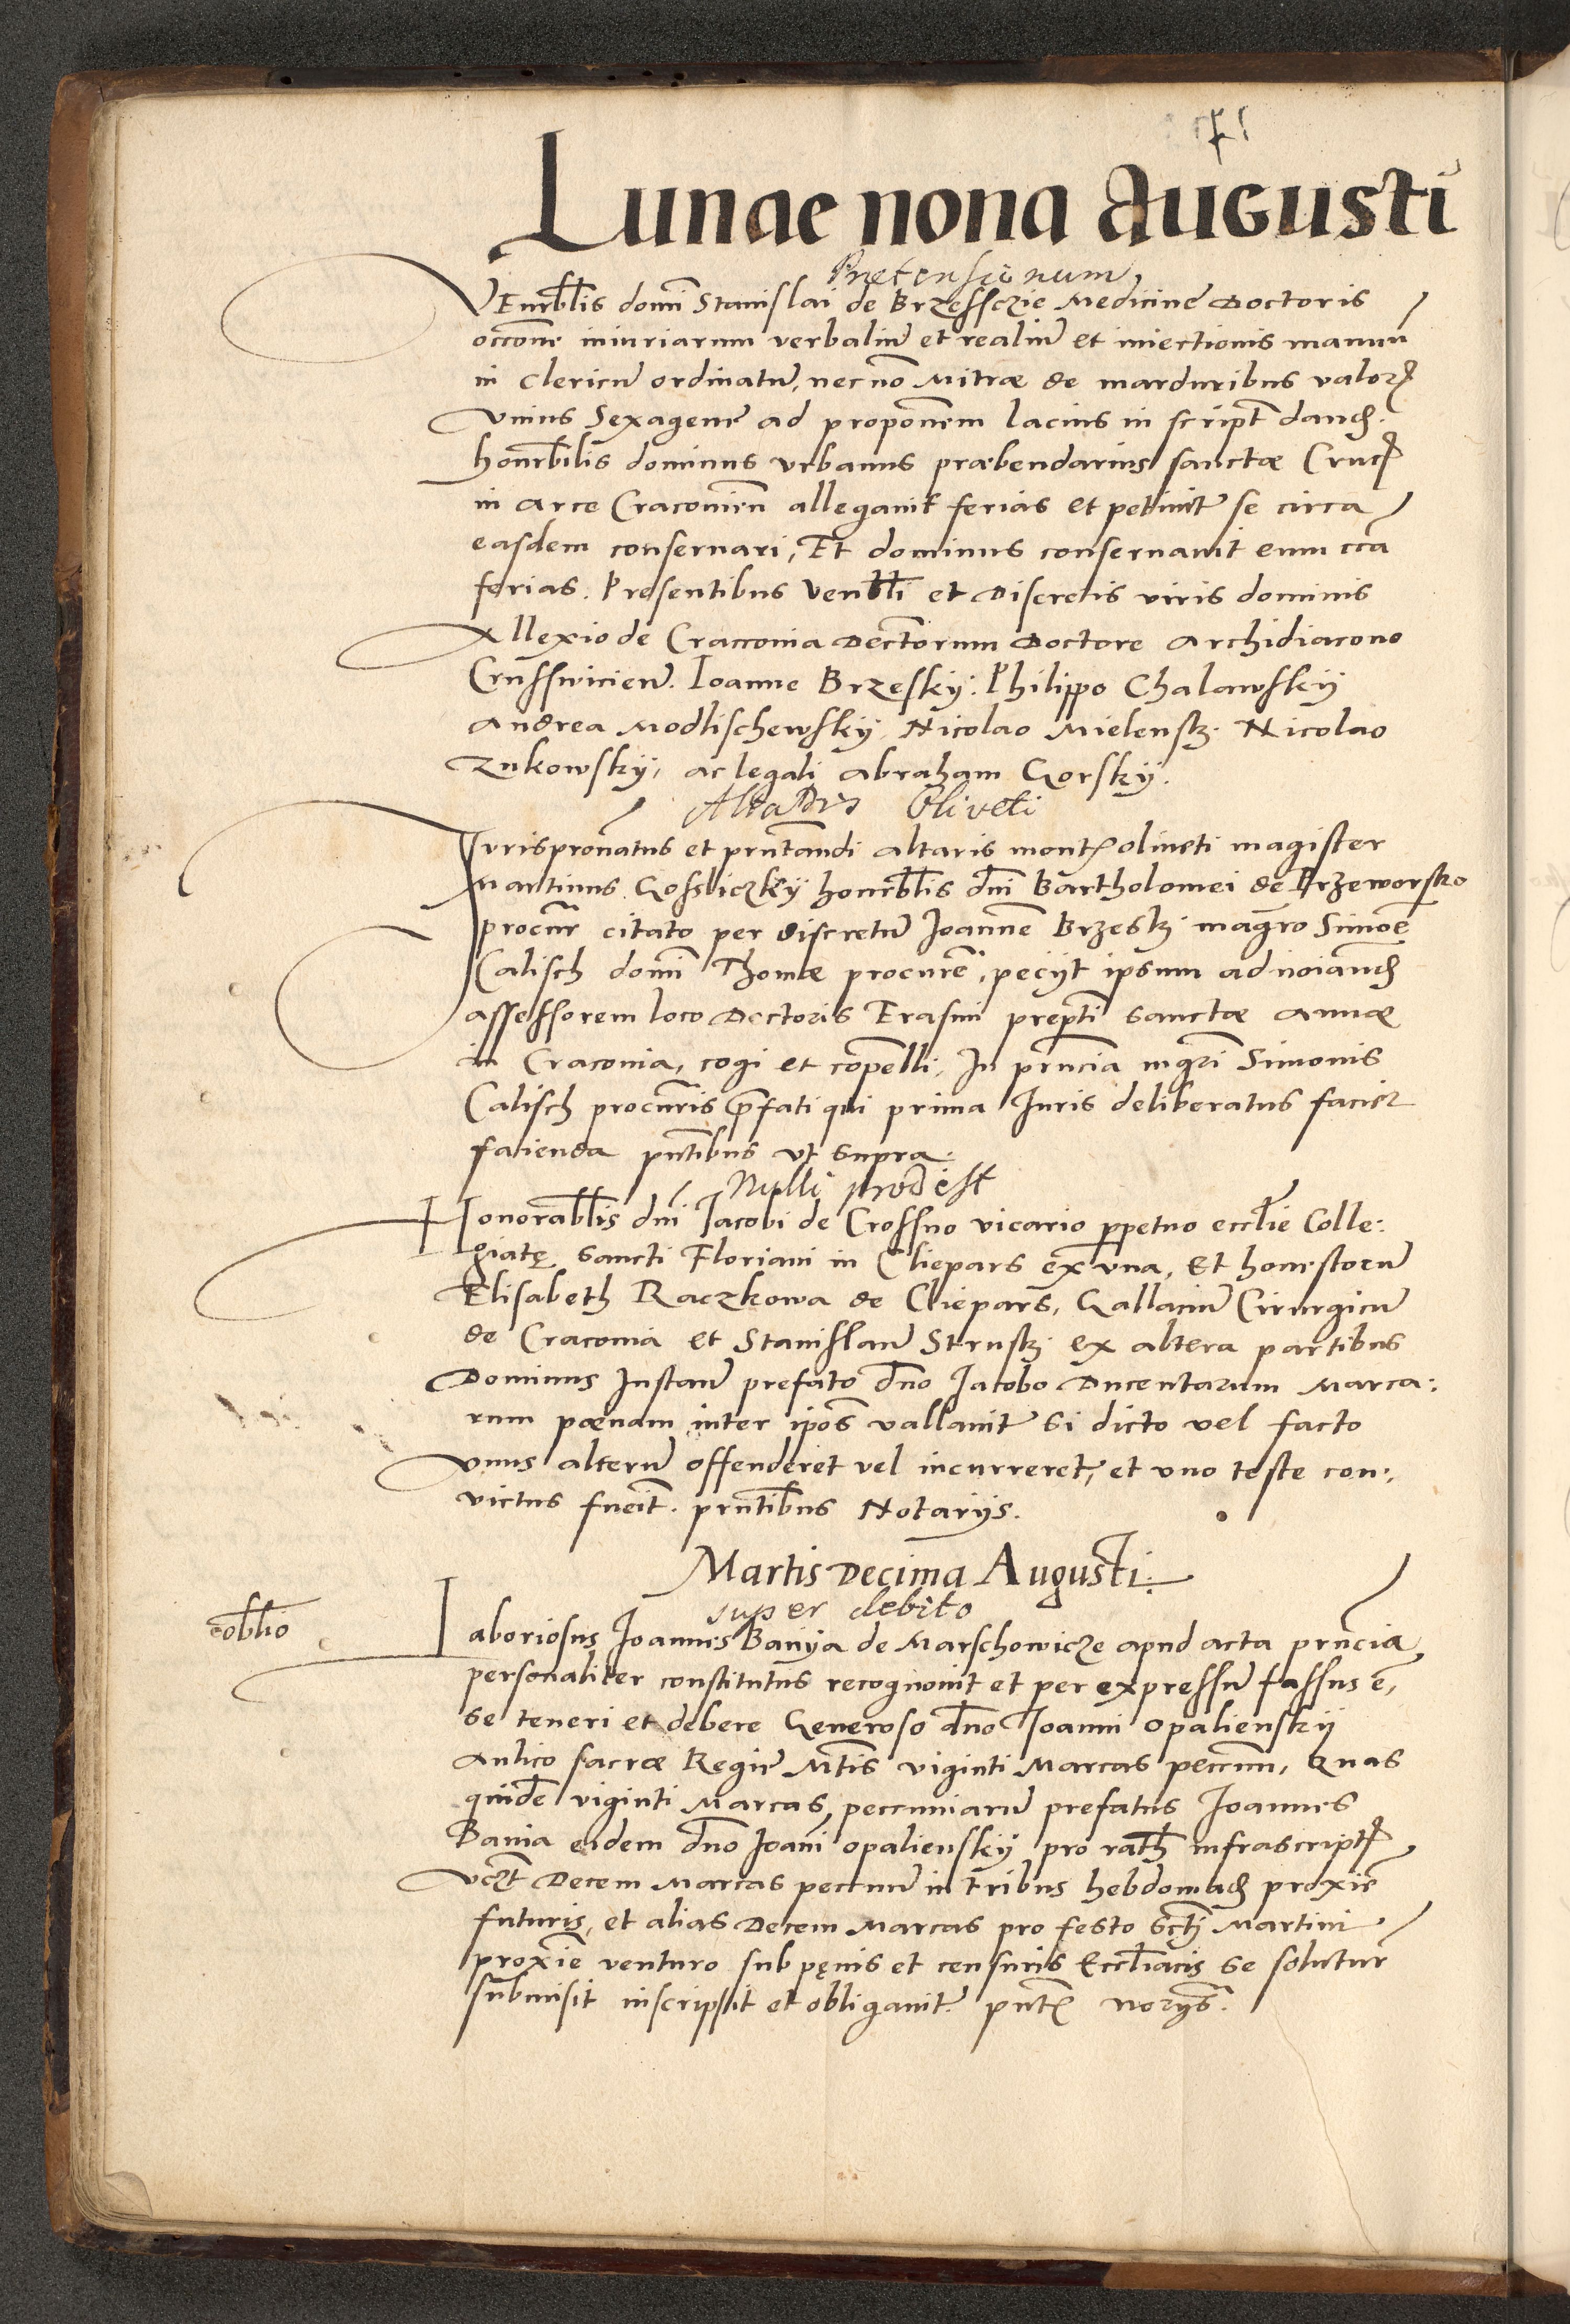 Lunae nona Augusti
Pretensionum
VEnerbłis domĩ Stanislai de Brzessczie Medicine Doctoris
occõne iniuriarum verbaliũ et realiũ et iniectionis manuũ
in clericũ ordinatũ, nec nõ Mitræ de marduribus valor
Vnius Sexagene ad proponem̃ lacius in script dand.
honorbilis dominus Vrbanus præbendarius sanctæ Cruc
in arce Cracouieñ allegauit ferias et petiuit se circa
easdem conseruari, Et dominus conseruauit eum cca
ferias. Presentibus Venbłi et Discretis viris dominis
Allexio de Cracconia Dectorum Doctore Archidiacono
Crussuicieñ. Ioanne Brzesky. Philippo Chalawsky
Andrea Modlischewsky, Nicolao Mielensk. Nicolao
Zukowsky, ac legali Abraham Gorsky.
Altaris Oliveti
Iurispronatus et pñtandi altaris mont oliueti magister
Martinus Gossliczky honorbłis dñi Bartholomei de Przeworsko
procur citato per discretũ Joannẽ Brzesk magro Simoẽ
Calisch domĩ Thomæ procurẽ, pecijt ipsum ad noiand
assessorem loco Doctoris Erasmi prepti sanctæ Annæ
in Craconia, cogi et compelli, In pñcia mgri Simonis
Calisch procuris p̃fati qui prima Iuris deliberatus faciet
fatienda pñtibus vt supra.
Nulli prodest
Honorabłis dñi Jacobi de Crossno vicario perpetuo ecclie Colle:
giatę sancti Floriani in Cliepars ex vna, Et honestorũ
Elisabeth Raczkowa de Clepars, Gallaciũ Cirurgicũ
de Craconia et Stanislaũ Strusk ex altera partibus
Dominus Instañ prefato dño Jacobo Ducentarum Marca:
rum pœnam inter ipõs vallauit si dicto vel facto
vnus alterũ offenderet vel incurreret, et vno teste con:
victus fueit. pñtibus Notarijs.
Martis Decima Augusti:
super debito
obłio
Laboriosus Joannes Banya de Marschowicze apud acta pñcia
personaliter constitutus recognouit et per expressũ fassus ẽ,
se teneri et debere Generoso dño Joanni Opaliensky
Aulico sacræ Regie Mtis viginti Marcas pecuñ, Quas
quidẽ viginti Marcas pecuniarũ prefatus Joannes
Bania eidem dño Joañi opaliensky pro rath infrascript
vczt Decem Marcas pecuñ in tribus hebdomad proxiẽ
futuris, et alias Decem Marcas pro festo sctj Martini
proxiẽ venturo sub pęnis et censuris Eccliacis se soluturũ
submisit inscripsit et obligauit. pñt norijs.